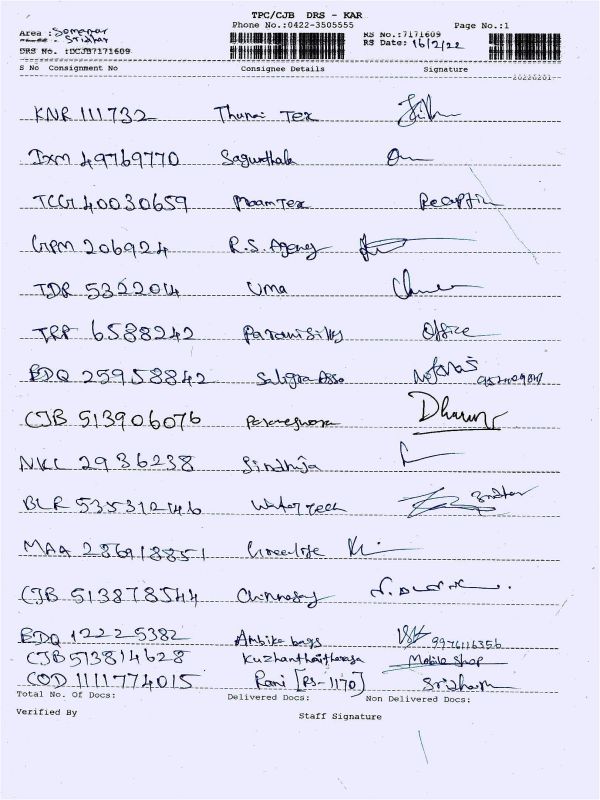 TPC/CJB DRS - KAR
Phone No.:0422-3505555 Page No.:1
Area : Somanur RS No.:7171609
Sridhar RS Date: 16/2/22
DRS No. :DCJB7171609
S No Consignment No Consignee Details Signature
20220201
KNR 111732 Thunai Tex
IXM 49769770
TCG 40030659 Maam Tex Reception
GPM 206924 R.S. Agency
TDR 5322014 Uma
TRP 6588242 Parani silks Office
BDQ 25958842 Saligra Asso
CJB 513906076 Parameshwara Dharun
NKL 2936238 Sindhuja
BLR 535312446 Water Tech Sridhar
MAA 286918851 Greenlife
CJB 513878544 Chinnasamy
BDQ 12225382 Ambika bags 9976116356
CJB 513814628 Kuzhanthaitharasa Mobile shop
COD 1111774015 Rani [RS-1170] Sridharan
Total No. Of Docs: Delivered Docs: Non Delivered Docs:
Verified By Staff Signature